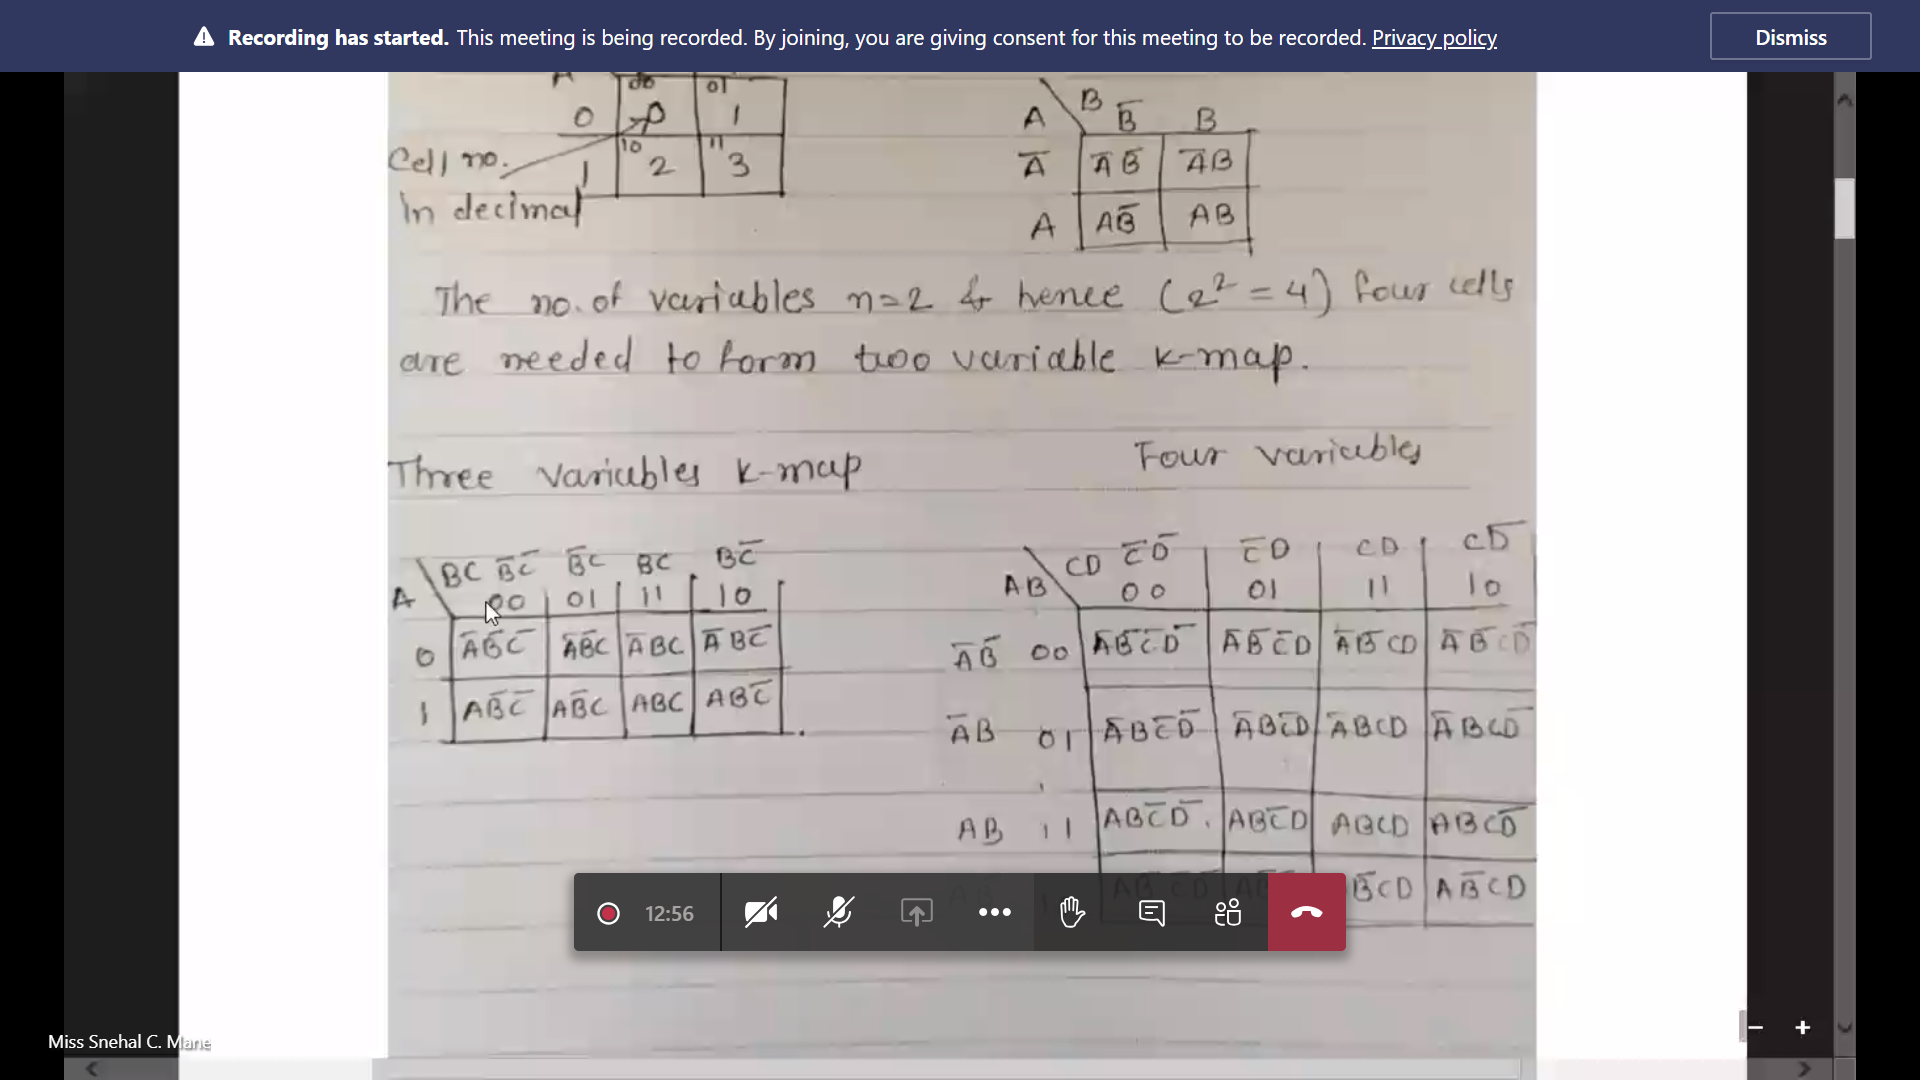 Recording has started. This meeting is being recorded. By joining, you are giving consent for this meeting to be recorded. Privacy policy
Dismiss
00 01
0 0 1
Cell no. 10 11
1 2 3
In decimal
B
A B̅ B
A̅ A̅B̅ A̅B
A AB̅ AB
The no. of variables n=2 & hence (2² = 4) four cells
are needed to form two variable k-map.
Three variables k-map
BC B̅C̅ B̅C BC BC̅
A 00 01 11 10
0 A̅B̅C̅ A̅B̅C A̅BC A̅BC̅
1 AB̅C̅ AB̅C ABC ABC̅
Four variables
CD C̅D̅ C̅D CD CD̅
AB 00 01 11 10
A̅B̅ 00 A̅B̅C̅D̅ A̅B̅C̅D A̅B̅CD A̅B̅CD̅
A̅B 01 A̅BC̅D̅ A̅BC̅D A̅BCD A̅BCD̅
AB 11 ABC̅D̅ ABC̅D ABCD ABCD̅
B̅CD AB̅CD
12:56
Miss Snehal C. Mane